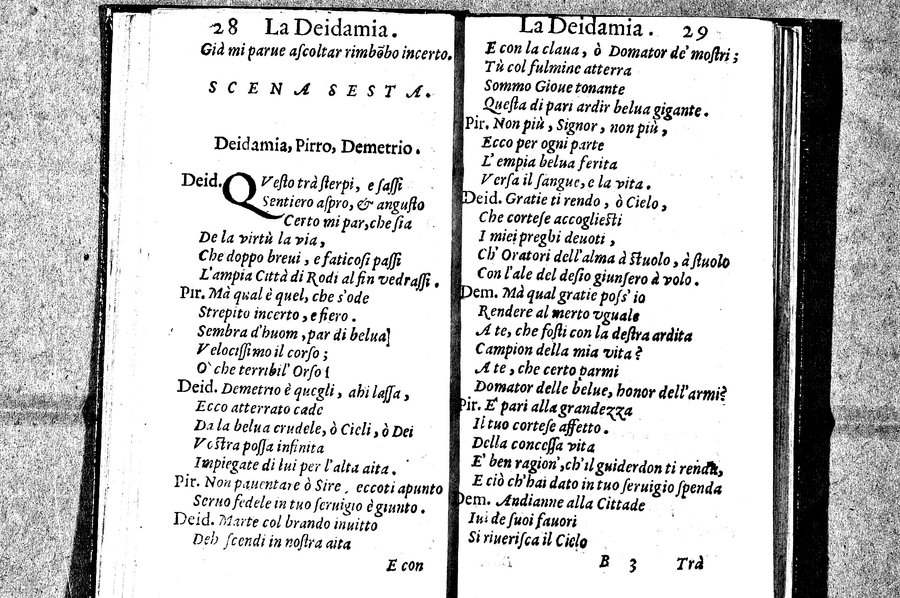 28 La Deidamia.
Già mi parue aſcoltar rimbõbo incerto.
SCENA SESTA.
Deidamia, Pirro, Demetrio.
Deid. QVeſto trà ſterpi, e ſaſſi
Sentiero aſpro, & anguſto
Certo mi par, che ſia
De la virtù la via,
Che doppo breui, e faticoſi paſſi
L'ampia Città di Rodi al fin vedraſſi.
Pir. Mà qual è quel, che s'ode
Strepito incerto, e fiero.
Sembra d'huom, par di belua
Velociſſimo il corſo;
O' che terribil' Orſo!
Deid. Demetrio è quegli, ahi laſſa,
Ecco atterrato cade
Da la belua crudele, ò Cieli, ò Dei
Voſtra poſſa infinita
Impiegate di lui per l'alta aita.
Pir. Non pauentare ò Sire, eccoti apunto
Seruo fedele in tuo ſeruigio è giunto.
Deid. Marte col brando inuitto
Deh ſcendi in noſtra aita
E con
La Deidamia. 29
E con la claua, ò Domator de' moſtri;
Tù col fulmine atterra
Sommo Gioue tonante
Queſta di pari ardir belua gigante.
Pir. Non più, Signor, non più,
Ecco per ogni parte
L'empia belua ferita
Verſa il ſangue, e la vita.
Deid. Gratie ti rendo, ò Cielo,
Che corteſe accoglieſti
I miei preghi deuoti,
Ch' Oratori dell'alma à ſtuolo, à ſtuolo
Con l'ale del deſio giunſero à volo.
Dem. Mà qual gratie poſs' io
Rendere al merto vguale
A te, che foſti con la deſtra ardita
Campion della mia vita?
A te, che certo parmi
Domator delle belue, honor dell'armi?
Pir. E' pari alla grandezza
Il tuo corteſe affetto.
Della conceſſa vita
E' ben ragion', ch'il guiderdon ti renda,
E ciò ch'hai dato in tuo ſeruigio ſpenda
Dem. Andianne alla Cittade
Iui de ſuoi fauori
Si riueriſca il Cielo
B 3 Trà